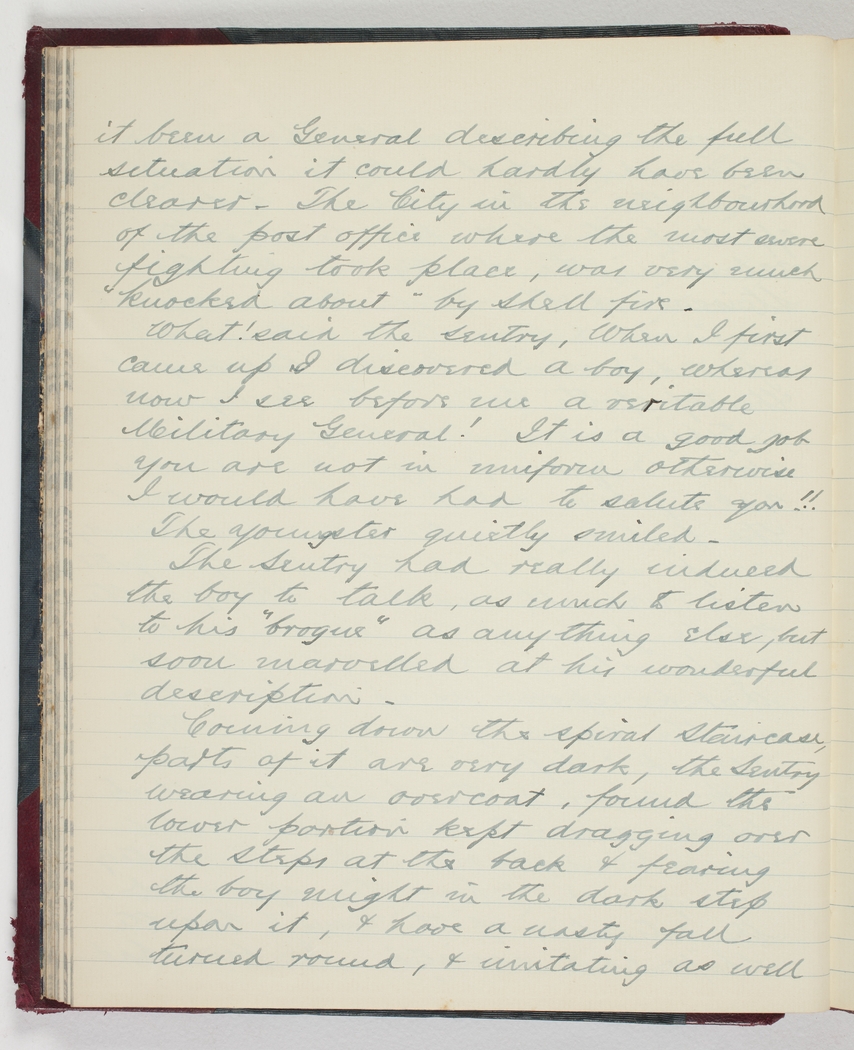 it been a General describing the full
situation it could hardly have been
clearer - The City in the neighbourhood
of the post office where the most severe
fighting took place, was very much
"knocked about" by shell fire -
What! said the sentry, When I first
came up I discovered a boy, whereas
now I see before me a veritable
Military General! It is a good job
you are not in uniform otherwise
I would have had to salute you!!
The youngster quietly smiled -
The Sentry had really induced
the boy to talk, as much to listen
to his "brogue" as anything else, but
soon marvelled at his wonderful
description -
Coming down the spiral staircase,
parts of it are very dark, the Sentry
wearing an overcoat, found the
lower portion kept dragging over
the steps at the back & fearing
the boy might in the dark step
upon it, & have a nasty fall
turned round, & imitating as well